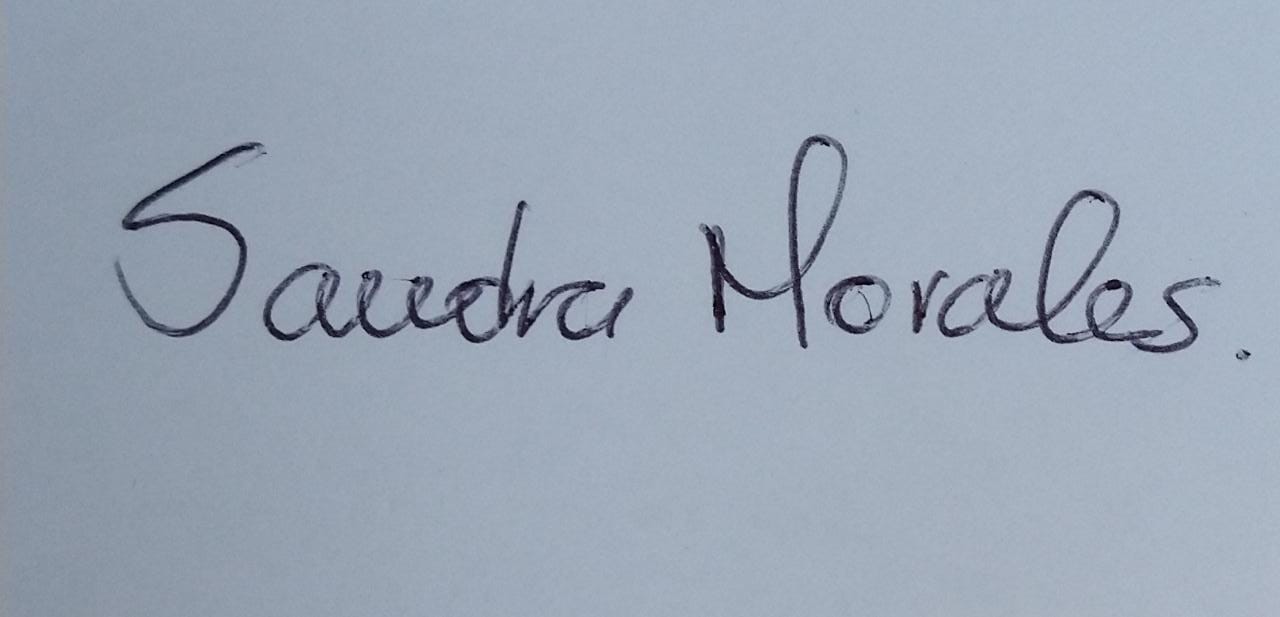 Sandra Morales.